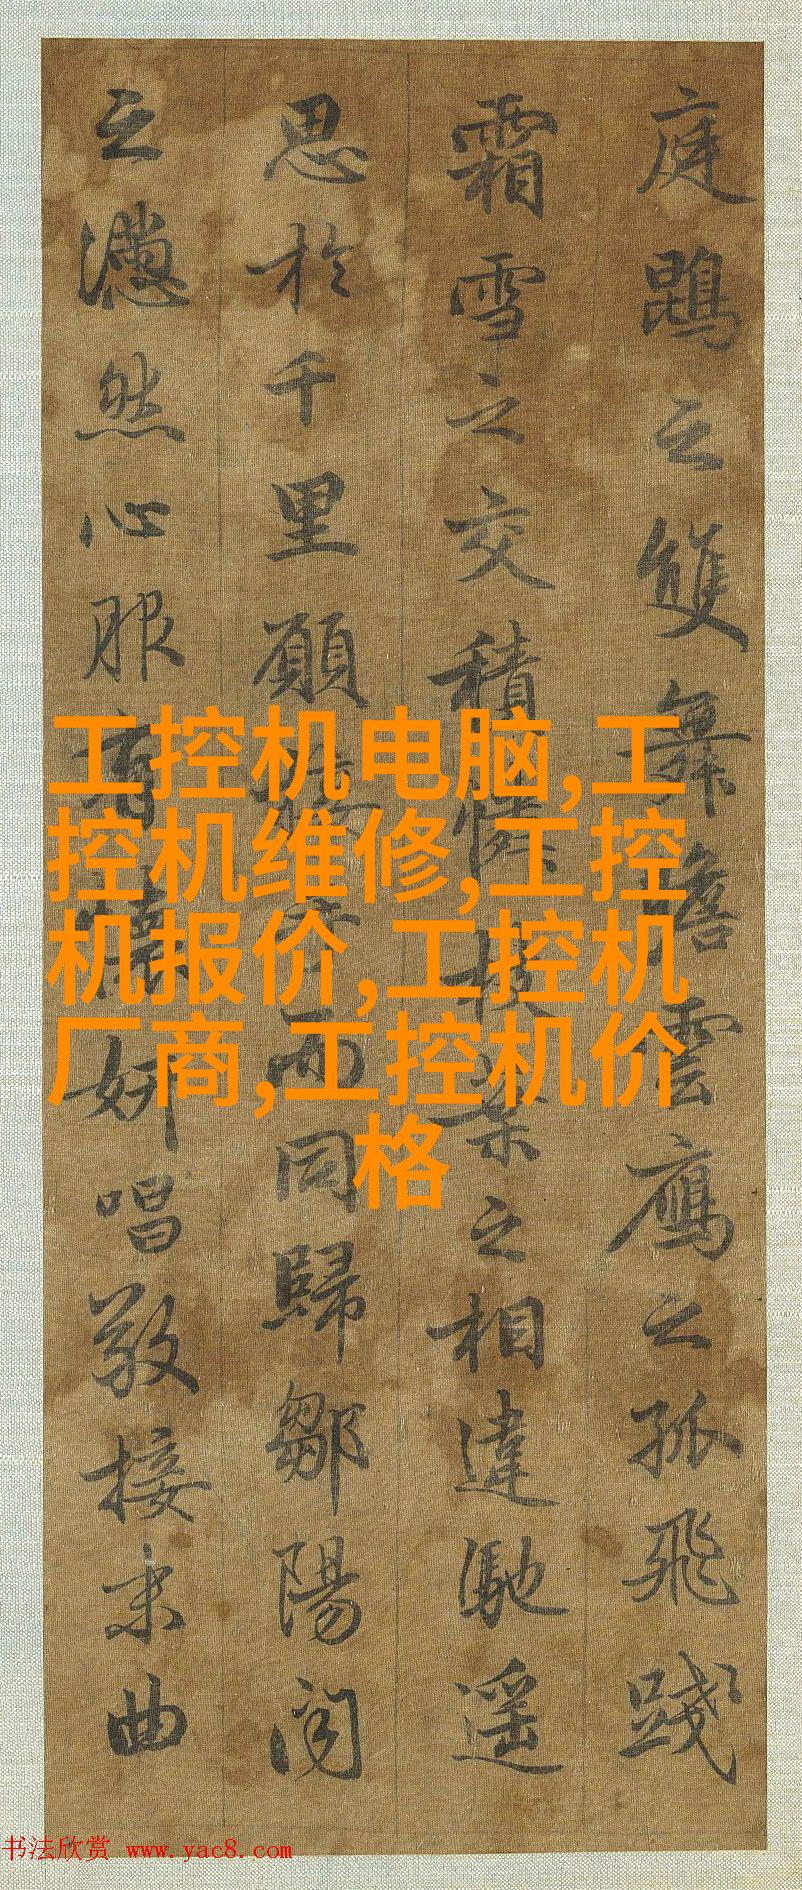 庭鵾之雙舞瞻雲鴈之孤飛踐
霜雪之交積憐枝葉之相違馳遥
思於千里願接手而同歸鄒陽聞
之懣然心服有懷妍唱敬接末曲
工控机电脑,工
控机维修,工控
机报价,工控机
厂商,工控机价
格
书法欣赏 www.yac8.com